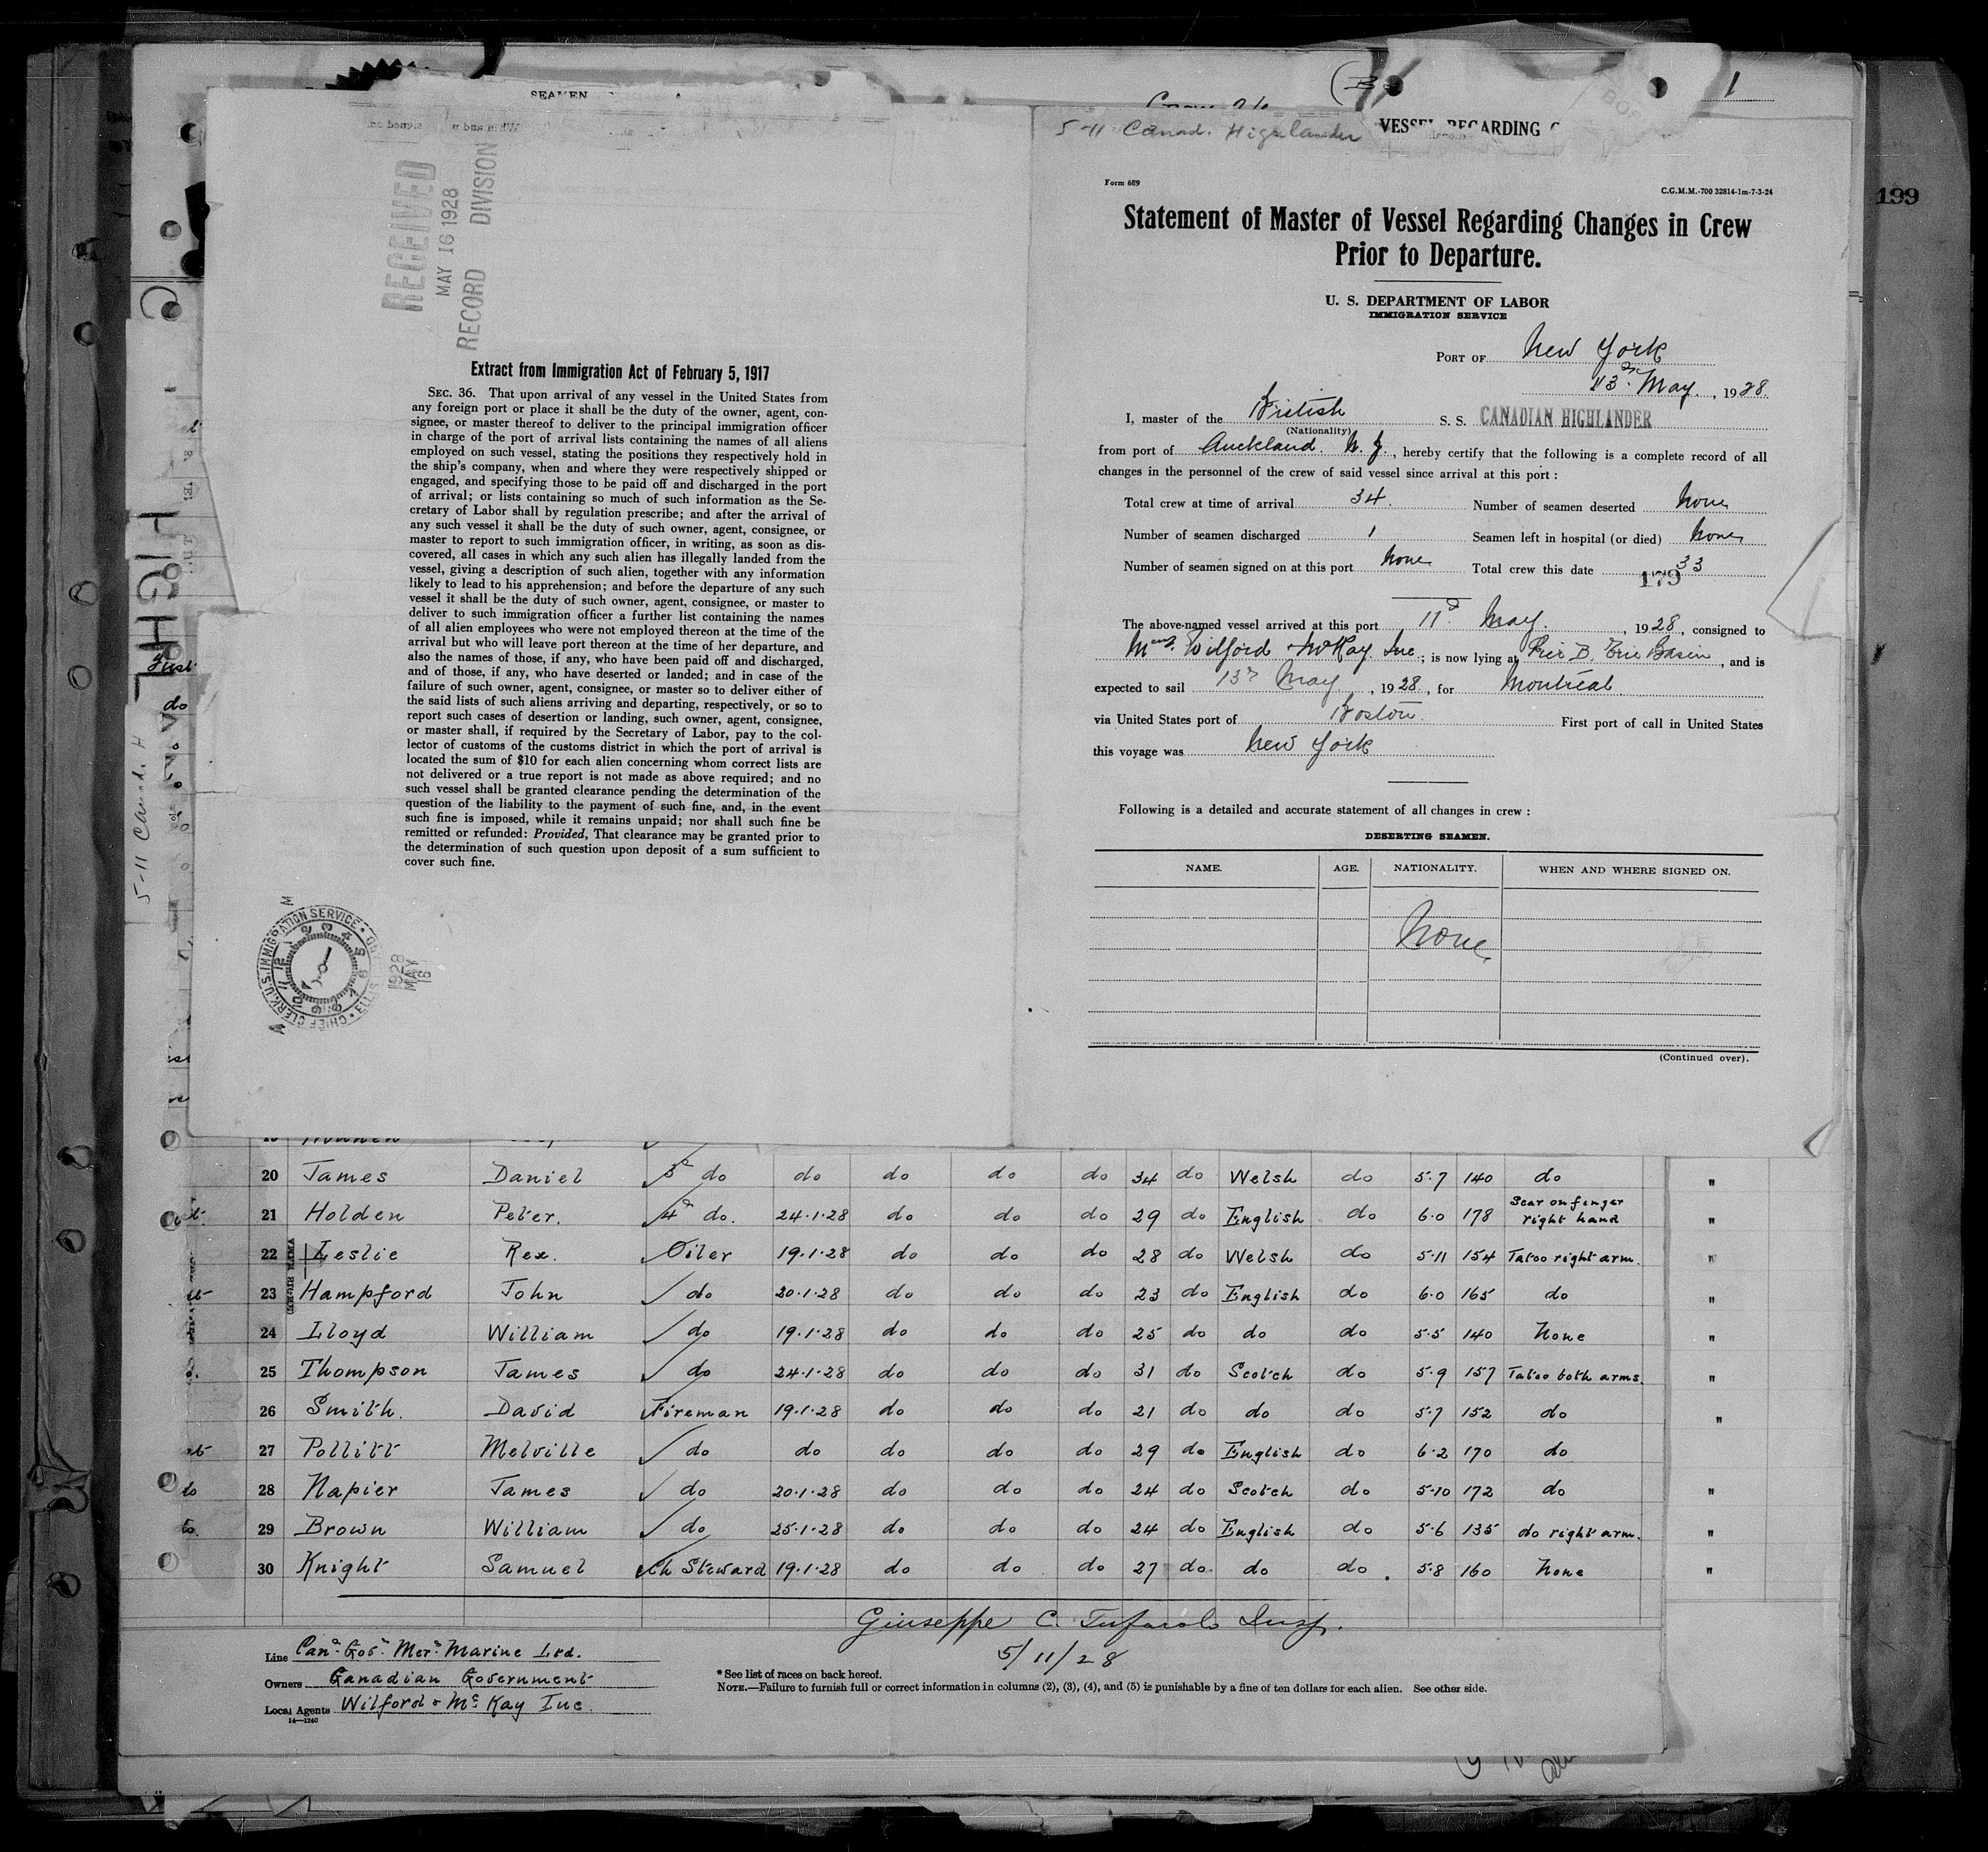 SEAMEN
RECEIVED
MAY 16 1928
RECORD DIVISION
Extract from Immigration Act of February 5, 1917
SEC. 36. That upon arrival of any vessel in the United States from
any foreign port or place it shall be the duty of the owner, agent, con-
signee, or master thereof to deliver to the principal immigration officer
in charge of the port of arrival lists containing the names of all aliens
employed on such vessel, stating the positions they respectively hold in
the ship's company, when and where they were respectively shipped or
engaged, and specifying those to be paid off and discharged in the port
of arrival; or lists containing so much of such information as the Se-
cretary of Labor shall by regulation prescribe; and after the arrival of
any such vessel it shall be the duty of such owner, agent, consignee, or
master to report to such immigration officer, in writing, as soon as dis-
covered, all cases in which any such alien has illegally landed from the
vessel, giving a description of such alien, together with any information
likely to lead to his apprehension; and before the departure of any such
vessel it shall be the duty of such owner, agent, consignee, or master to
deliver to such immigration officer a further list containing the names
of all alien employees who were not employed thereon at the time of the
arrival but who will leave port thereon at the time of her departure, and
also the names of those, if any, who have been paid off and discharged,
and of those, if any, who have deserted or landed; and in case of the
failure of such owner, agent, consignee, or master so to deliver either of
the said lists of such aliens arriving and departing, respectively, or so to
report such cases of desertion or landing, such owner, agent, consignee,
or master shall, if required by the Secretary of Labor, pay to the col-
lector of customs of the customs district in which the port of arrival is
located the sum of $10 for each alien concerning whom correct lists are
not delivered or a true report is not made as above required; and no
such vessel shall be granted clearance pending the determination of the
question of the liability to the payment of such fine, and, in the event
such fine is imposed, while it remains unpaid; nor shall such fine be
remitted or refunded: Provided, That clearance may be granted prior to
the determination of such question upon deposit of a sum sufficient to
cover such fine.
CHIEF CLERK, U.S. IMMIGRATION SERVICE
1928 MAY 16
5-11 Canad. Highlander
VESSEL REGARDING
1
199
Form 689
C.G.M.M.-700 32814-1m-7-3-24
Statement of Master of Vessel Regarding Changes in Crew
Prior to Departure.
U. S. DEPARTMENT OF LABOR
IMMIGRATION SERVICE
PORT OF New York
13th May, 1928.
I, master of the British S. S. CANADIAN HIGHLANDER
(Nationality)
from port of Auckland. N. Z., hereby certify that the following is a complete record of all
changes in the personnel of the crew of said vessel since arrival at this port:
Total crew at time of arrival 34. Number of seamen deserted None
Number of seamen discharged 1 Seamen left in hospital (or died) None
Number of seamen signed on at this port None Total crew this date 33
179
The above-named vessel arrived at this port 11th May, 1928, consigned to
Messrs. Wilford & McKay Inc; is now lying at Pier B. Erie Basin, and is
expected to sail 13th May, 1928, for Montreal
via United States port of Boston. First port of call in United States
this voyage was New York
Following is a detailed and accurate statement of all changes in crew:
DESERTING SEAMEN.
NAME. AGE. NATIONALITY. WHEN AND WHERE SIGNED ON.
None
(Continued over).
HIGHLA
5-11 Canad. H
20 James Daniel 3d do do do do do 34 do Welsh do 5·7 140 do "
21 Holden Peter. 4th do. 24·1·28 do do do 29 do English do 6·0 178 Scar on finger right hand "
22 Leslie Rex. Oiler 19·1·28 do do do 28 do Welsh do 5·11 154 Tatoo right arm. "
23 Hampford John do 20·1·28 do do do 23 do English do 6·0 165 do "
24 Lloyd William do 19·1·28 do do do 25 do do do 5·5 140 None "
25 Thompson James do 24·1·28 do do do 31 do Scotch do 5·9 157 Tatoo both arms. "
26 Smith. David Fireman 19·1·28 do do do 21 do do do 5·7 152 do "
27 Pollitt Melville do do do do do 29 do English do 6·2 170 do
28 Napier James do 20·1·28 do do do 24 do Scotch do 5·10 172 do "
29 Brown William do 25·1·28 do do do 24 do English do 5·6 135 do right arm. "
30 Knight Samuel Ch Steward 19·1·28 do do do 27 do do do. 5·8 160 None "
Giuseppe C. Tufarolo Insp.
5/11/28
Line Cand. Govt. Mert. Marine Ltd.
Owners Canadian Government
Local Agents Wilford & Mc Kay Inc.
14—1240
* See list of races on back hereof.
NOTE.—Failure to furnish full or correct information in columns (2), (3), (4), and (5) is punishable by a fine of ten dollars for each alien. See other side.